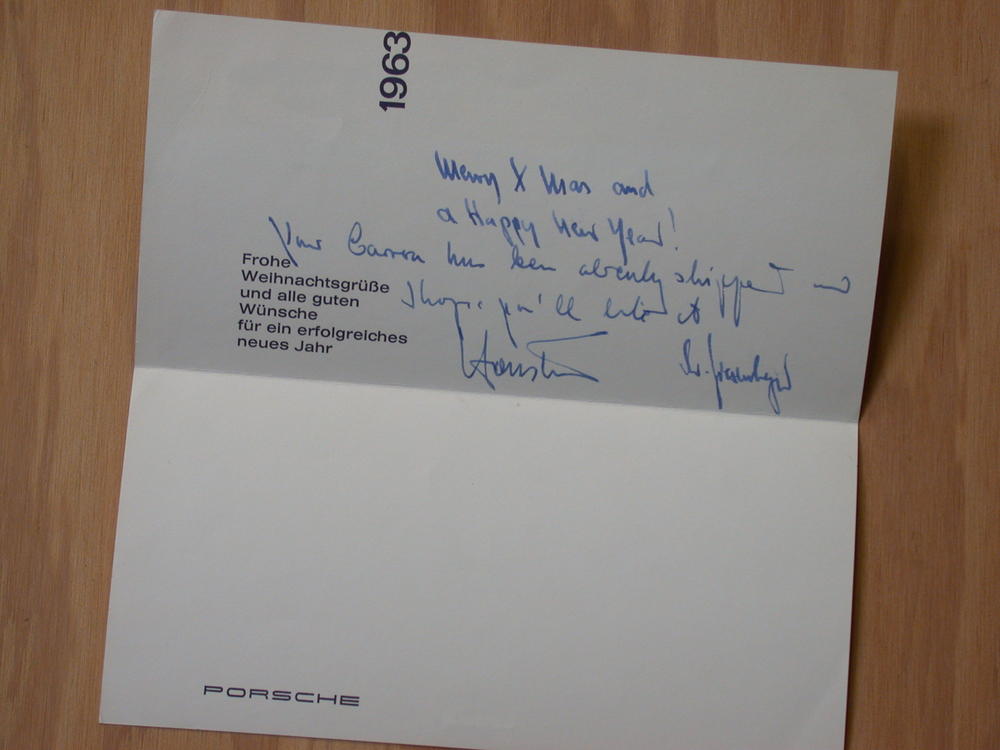 1963
Merry X Mas and
a Happy New Year!
Your Carrera has been already shipped and
I hope you'll like it
Frohe
Weihnachtsgrüße
und alle guten
Wünsche
für ein erfolgreiches
neues Jahr
PORSCHE